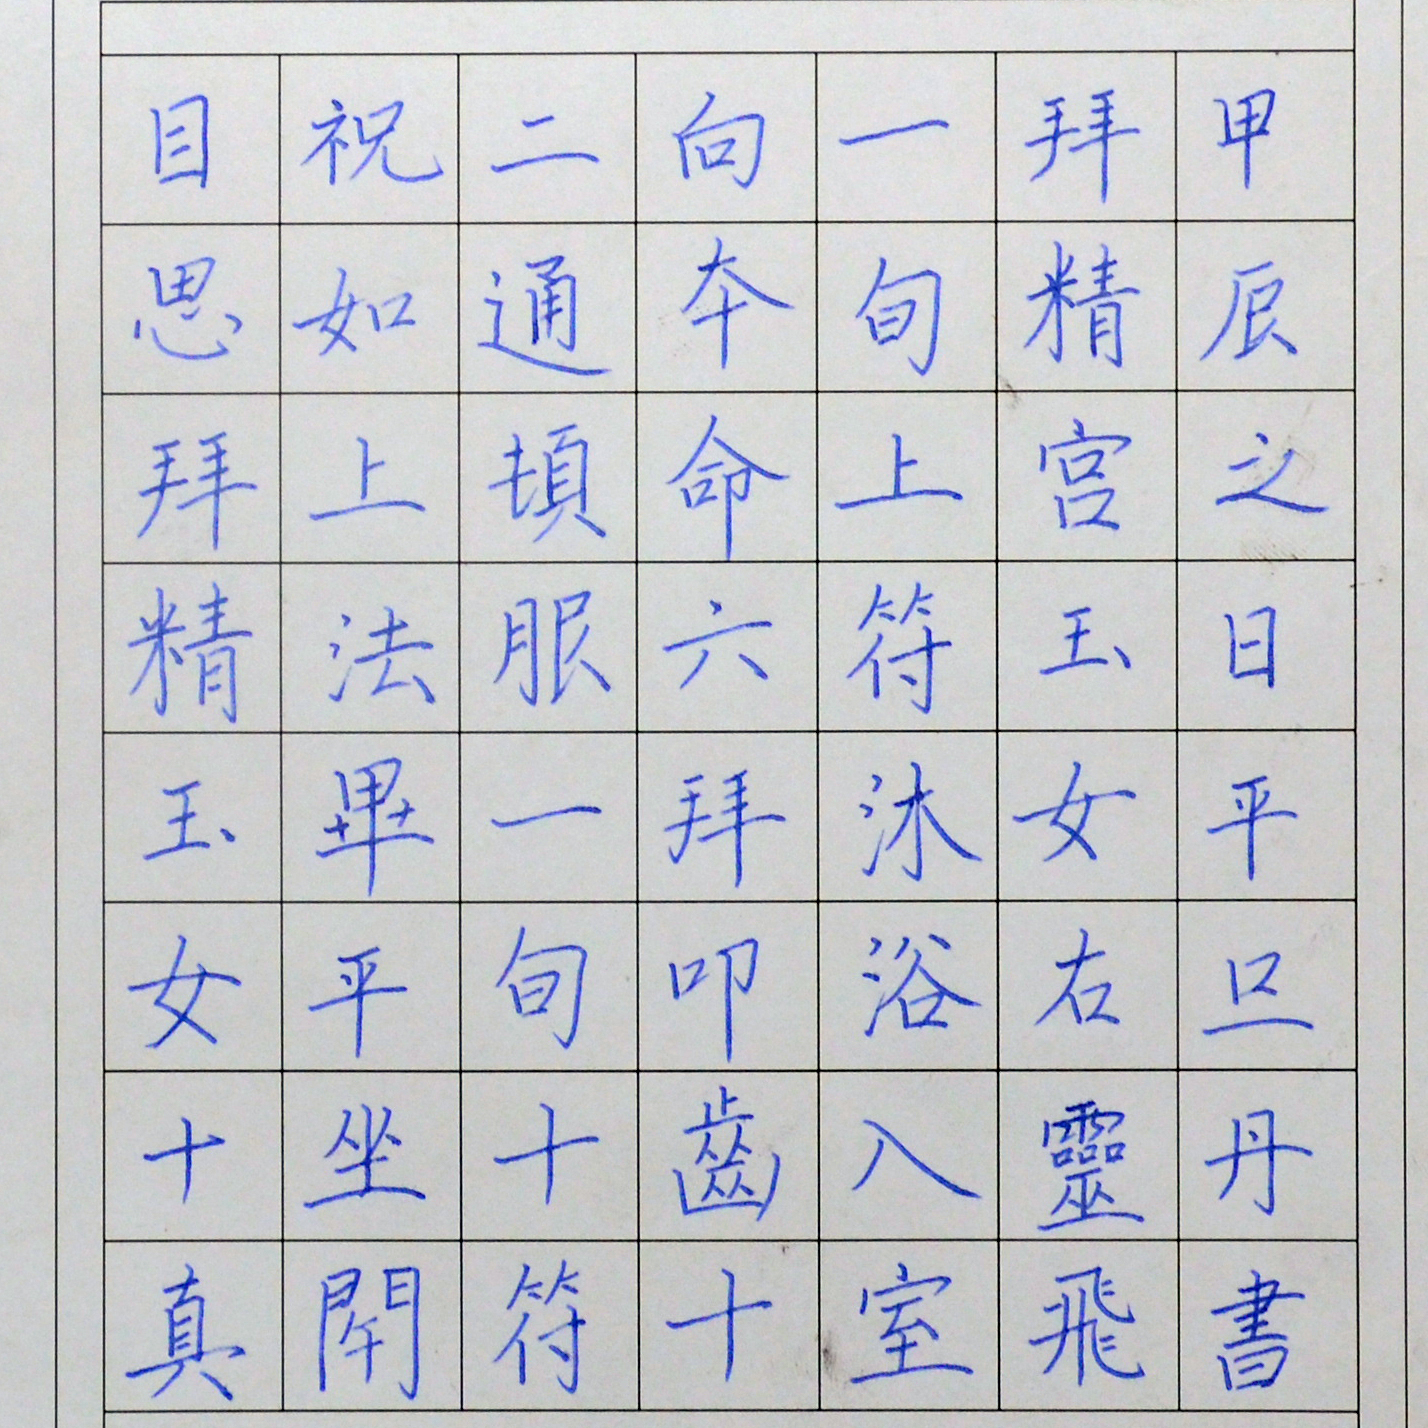 甲辰之日平旦丹書
拜精宫玉女右靈飛
一旬上符沐浴入室
向夲命六拜叩齒十
二通頓服一旬十符
祝如上法畢平坐閇
目思拜精玉女十真